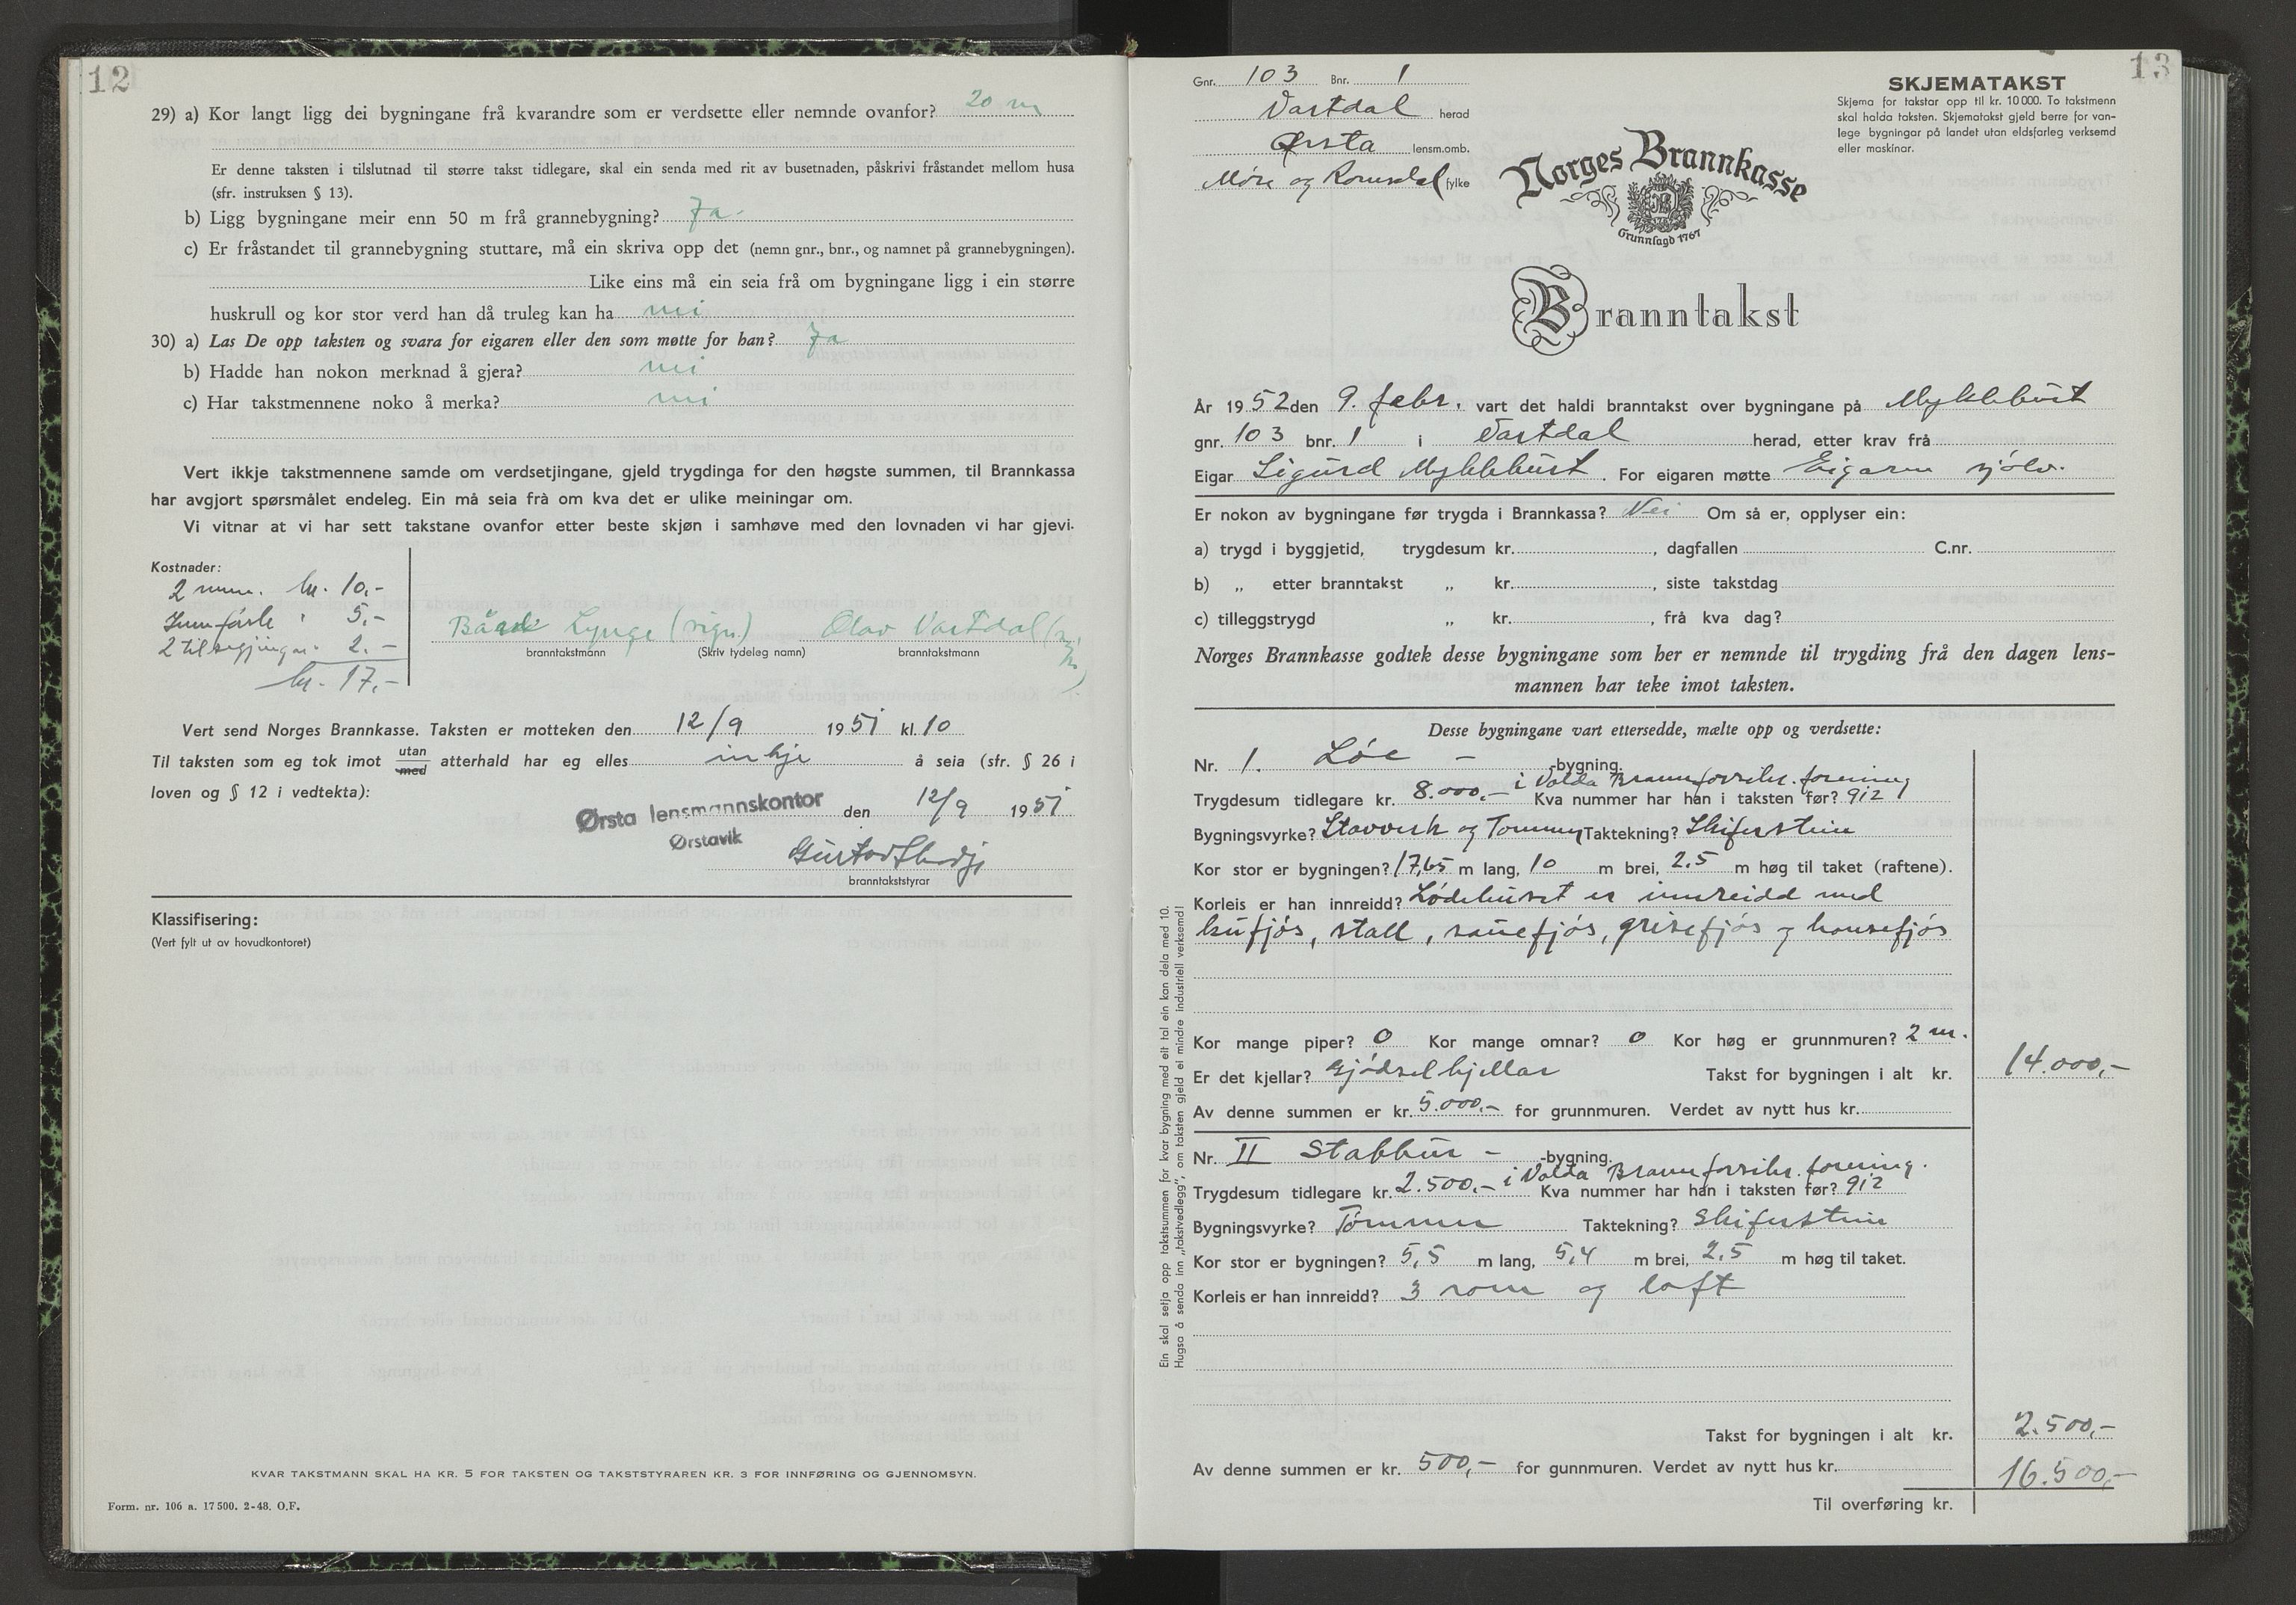 12
29) a) Kor langt ligg dei bygningane frå kvarandre som er verdsette eller nemnde ovanfor? 20 m
Er denne taksten i tilslutnad til større takst tidlegare, skal ein senda med rit av busetnaden, påskrivi fråstandet mellom husa
(sfr. instruksen § 13).
b) Ligg bygningane meir enn 50 m frå grannebygning? Ja-
c) Er fråstandet til grannebygning stuttare, må ein skriva opp det (nemn gnr., bnr., og namnet på grannebygningen).
Like eins må ein seia frå om bygningane ligg i ein større
huskrull og kor stor verd han då truleg kan ha nei
30) a) Las De opp taksten og svara for eigaren eller den som møtte for han? Ja
b) Hadde han nokon merknad å gjera? nei
c) Har takstmennene noko å merka? nei
Vert ikkje takstmennene samde om verdsetjingane, gjeld trygdinga for den høgste summen, til Brannkassa
har avgjort spørsmålet endeleg. Ein må seia frà om kva det er ulike meiningar om.
Vi vitnar at vi har sett takstane ovanfor etter beste skjøn i samhøve med den lovnaden vi har gjevi.
Kostnader:
2 menn. kr. 10,-
Innførsle " 5,-
2 tilsegjingar " 2.-
kr. 17,-
Bård Lynge (sign.) Olav Vartdal (sign)
branntakstmann (Skriv tydeleg namn) branntakstmann
Vert send Norges Brannkasse. Taksten er motteken den 12/9 1951 kl. 10
Til taksten som eg tok imot utan/med atterhald har eg elles inkje å seia (sfr. § 26 i
loven og § 12 i vedtekta):
Ørsta lensmannskontor den 12/9 1951
Ørstavik
Gustav
branntakststyrar
Klassifisering:
(Vert fylt ut av hovudkontoret)
KVAR TAKSTMANN SKAL HA KR. 5 FOR TAKSTEN OG TAKSTSTYRAREN KR. 3 FOR INNFØRING OG GJENNOMSYN.
Form. nr. 106 a. 17 500. 2-48. O.F.
13
Gnr. 103 Bnr. 1
Vartdal herad
Ørsta lensm.omb.
Møre og Romsdal fylke
SKJEMATAKST
Skjema for takstar opp til kr. 10 000. To takstmenn
skal halda taksten. Skjematakst gjeld berre for van-
lege bygningar på landet utan eldsfarleg verksemd
eller maskinar.
Norges Brannkasse
Grunnlagd 1767
Branntakst
År 1952 den 9. febr. vart det haldi branntakst over bygningane på Myklebust
gnr. 103 bnr. 1 i Vartdal herad, etter krav frå
Eigar Sigurd Myklebust. For eigaren møtte Eigaren sjølv.
Er nokon av bygningane før trygda i Brannkassa? Nei Om så er, opplyser ein:
a) trygd i byggjetid, trygdesum kr. , dagfallen C.nr.
b) „ etter branntakst „ kr. , siste takstdag
c) tilleggstrygd „ kr. , frå kva dag?
Norges Brannkasse godtek desse bygningane som her er nemnde til trygding frå den dagen lens-
mannen har teke imot taksten.
Desse bygningane vart ettersedde, mælte opp og verdsette:
Nr. 1. Løe - -bygning.
i Volda Brannforsikr. forening
Trygdesum tidlegare kr. 8.000,- Kva nummer har han i taksten før? 912
Bygningsvyrke? Stavverk og Tommer Taktekning? Skiferstein
Kor stor er bygningen? 17,65 m lang, 10 m brei, 2.5 m høg til taket (raftene).
Korleis er han innreidd? Lødehuset er innreidd med
kufjós, stall, sauefjós, grisefjós og hønsefjós
Kor mange piper? 0 Kor mange omnar? 0 Kor høg er grunnmuren? 2 m.
Er det kjellar? Gjødselkjellar Takst for bygningen i alt kr. 14.000,-
Av denne summen er kr. 5.000,- for grunnmuren. Verdet av nytt hus kr.
Nr. II Stabbur - -bygning.
i Volda Brannforsikr. forening.
Trygdesum tidlegare kr. 2.500,- Kva nummer har han i taksten før? 912
Bygningsvyrke? Tømmer Taktekning? Skiferstein
Kor stor er bygningen? 5,5 m lang, 5,4 m brei, 2,5 m høg til taket.
Korleis er han innreidd? 3 rom og loft
Takst for bygningen i alt kr. 2.500,-
Av denne summen er kr. 500,- for gunnmuren. Verdet av nytt hus kr.
16.500,-
Til overføring kr.
Ein skal setja opp takstsummen for kvar bygning med eit tal ein kan dela med 10.
Hugsa å senda inn „takstvedlegg", om taksten gjeld ei mindre industriell verksemd!